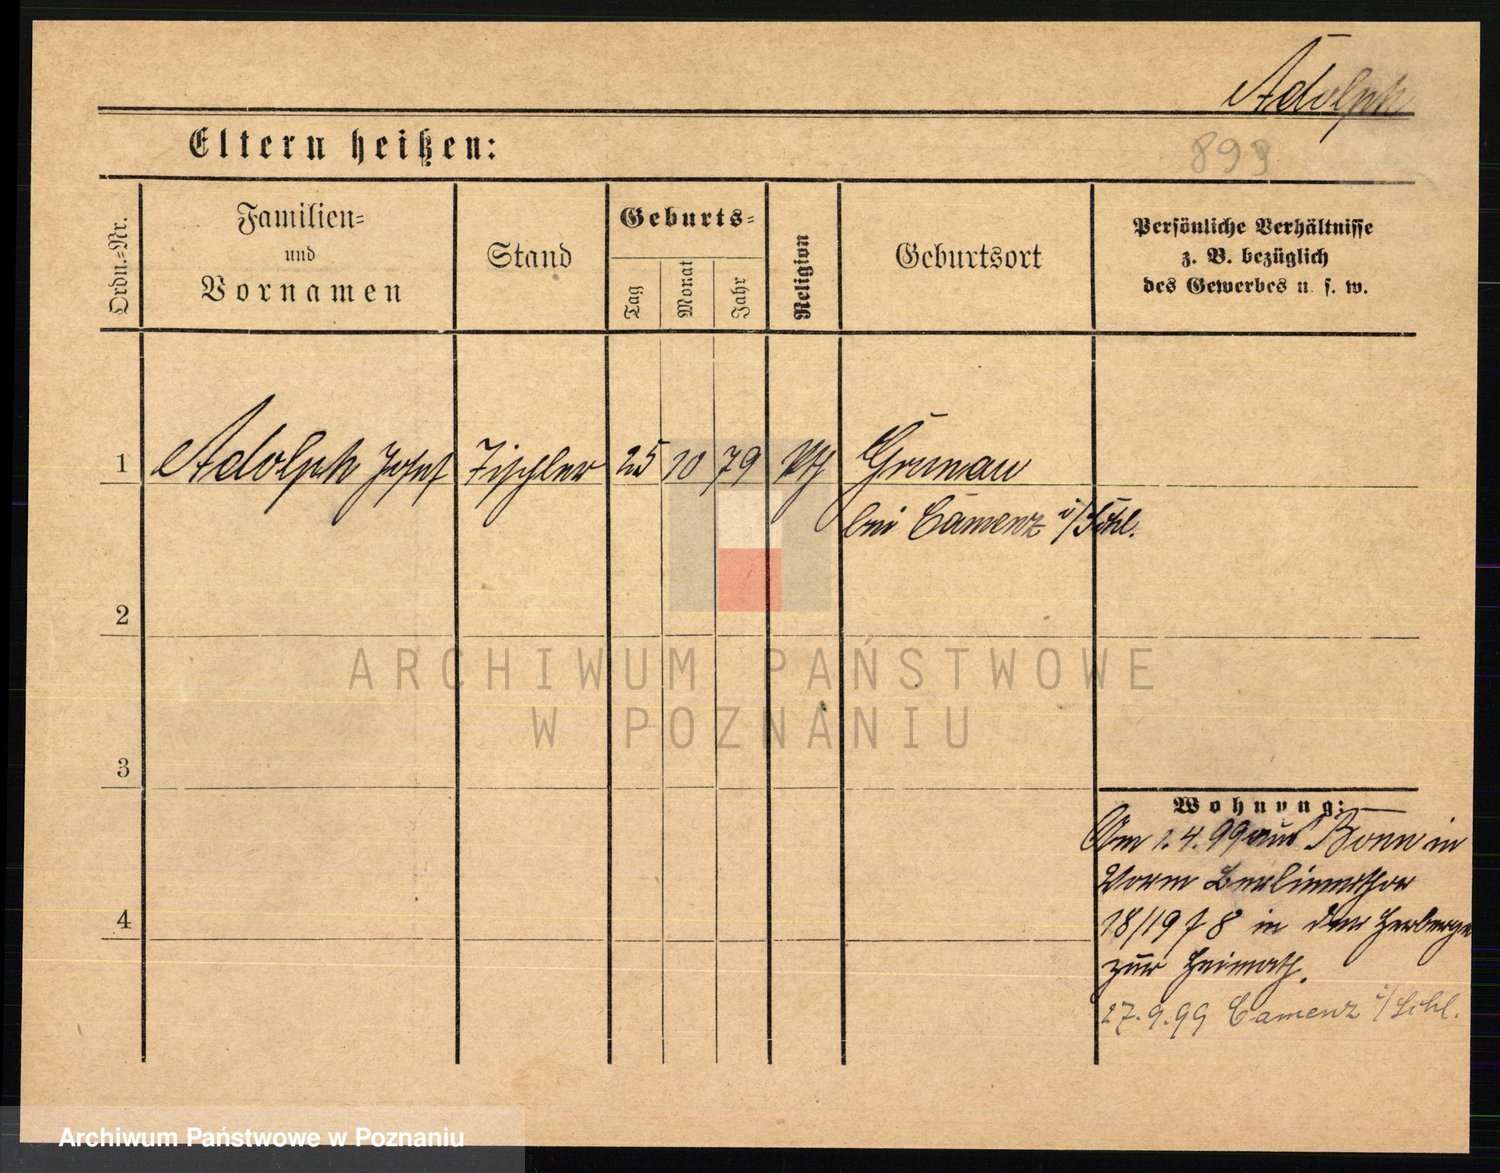 Adolph
Eltern heißen:
893
Ordn.=Nr.
Familien=
und
Vornamen
Stand
Geburts=
Tag
Monat
Jahr
Religion
Geburtsort
Persönliche Verhältnisse
z. B. bezüglich
des Gewerbes u. s. w.
1
Adolph Josef
Tischler
25
10
79
Grunau
bei Camenz i/Schl.
2
ARCHIWUM PAŃSTWOWE
W POZNANIU
3
Wohnung:
Am 1.4.99 aus Bonn in
Vorm Berlinerthor
18/19 f 8 in der Herberge
zur Heimath.
4
27.9.99 Camenz i/Schl.
Archiwum Państwowe w Poznaniu